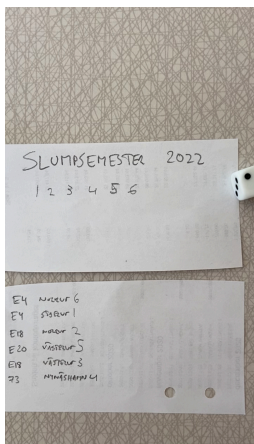 SLUMPSEMESTER 2022
1 2 3 4 5 6
E4 NORRUT 6
E4 SÖDERUT 1
E18 NORRUT 2
E20 VÄSTERUT 5
E18 VÄSTERUT 3
73 NYNÄSHAMN 4